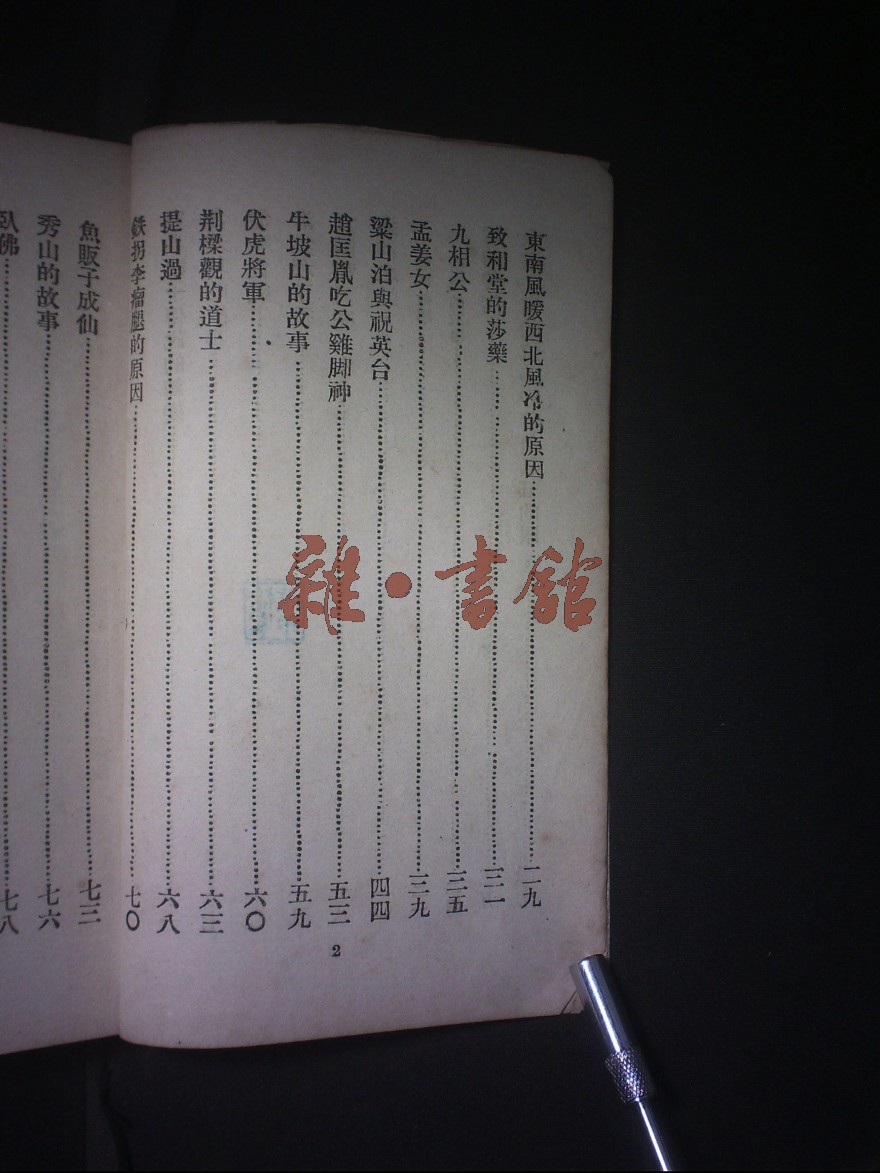 東南風暖西北風冷的原因……二九
致和堂的莎藥……三一
九相公……三五
孟姜女……三九
梁山泊與祝英台……四四
趙匡胤吃公雞脚神……五三
牛坡山的故事……五九
伏虎將軍……六〇
荆樑觀的道士……六三
提山過……六八
鉄拐李瘤腿的原因……七〇
2
魚販子成仙……七三
秀山的故事……七六
臥佛……七八
雜·書館